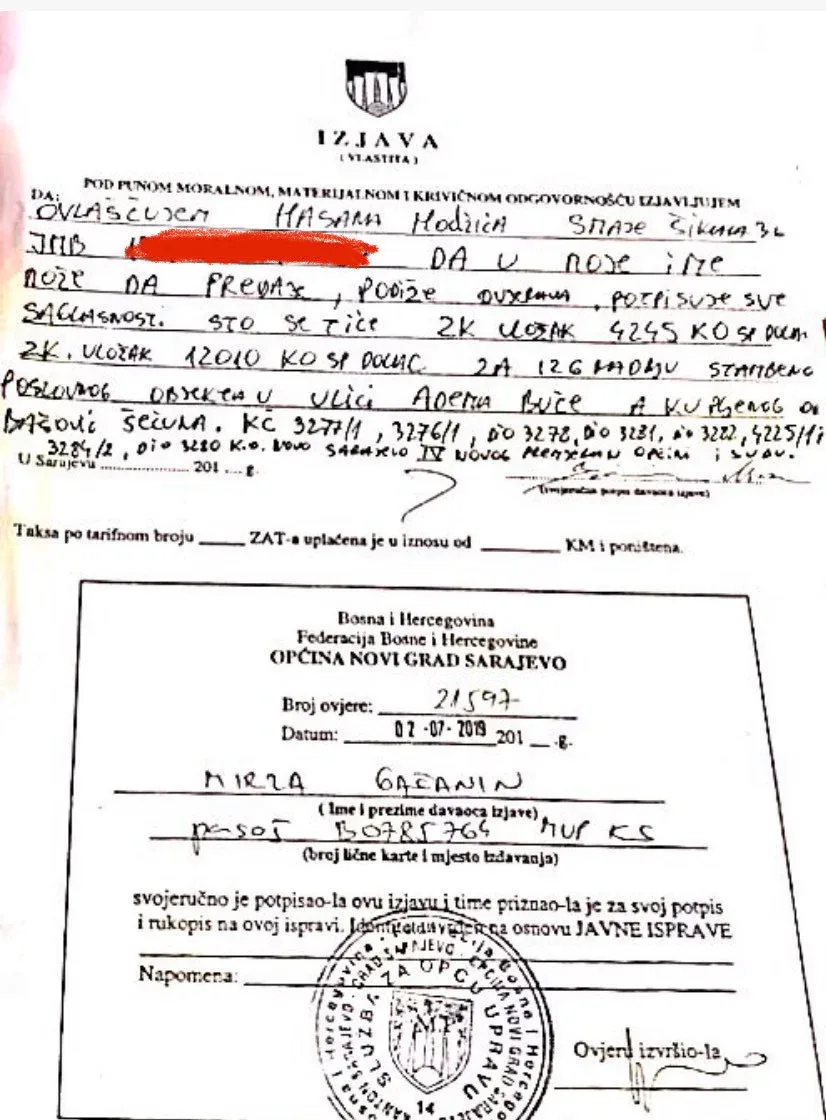 IZJAVA
(VLASTITA)
POD PUNOM MORALNOM, MATERIJALNOM I KRIVIČNOM ODGOVORNOŠĆU IZJAVLJUJEM
DA:
OVLAŠĆUJEM HASANA HODŽIĆA SMAJE ŠIKALA
JMB DA U MOJE IME
MOŽE DA PREDAJE, PODIŽE OVJERAVA, POTPISUJE SVE
SAGLASNOSTI. ŠTO SE TIČE ZK ULOŽAK 4245 KO SP DOLAC
ZK. ULOŽAK 12010 KO SP DOLAC ZA IZGRADNJU STAMBENO
POSLOVNOG OBJEKTA U ULICI ADEMA BUĆE A KUPLJENOG
ŠEĆIRA. KČ 3277/1, 3276/1, DIO 3278, DIO 3281, DIO 3282, 4225/1 i
3284/2, DIO 3280 K.O. NOVO SARAJEVO IV NOVOG OPĆINI I SUDU.
U Sarajevu .................... 201 .... g.
(svojeručni potpis davaoca izjave)
Taksa po tarifnom broju _____ ZAT-a uplaćena je u iznosu od ________ KM i poništena.
Bosna i Hercegovina
Federacija Bosne i Hercegovine
OPĆINA NOVI GRAD SARAJEVO
Broj ovjere: 21597
Datum: 02-07-2019 201 __ .g.
MIRZA GAČANIN
(Ime i prezime davaoca izjave)
pasoš B0785764 MUP KS
(broj lične karte i mjesto izdavanja)
svojeručno je potpisao-la ovu izjavu i time priznao-la je za svoj potpis
i rukopis na ovoj ispravi. Identitet utvrđen na osnovu JAVNE ISPRAVE
Napomena:
SLUŽBA ZA OPĆU UPRAVU
14
Ovjeru izvršio-la